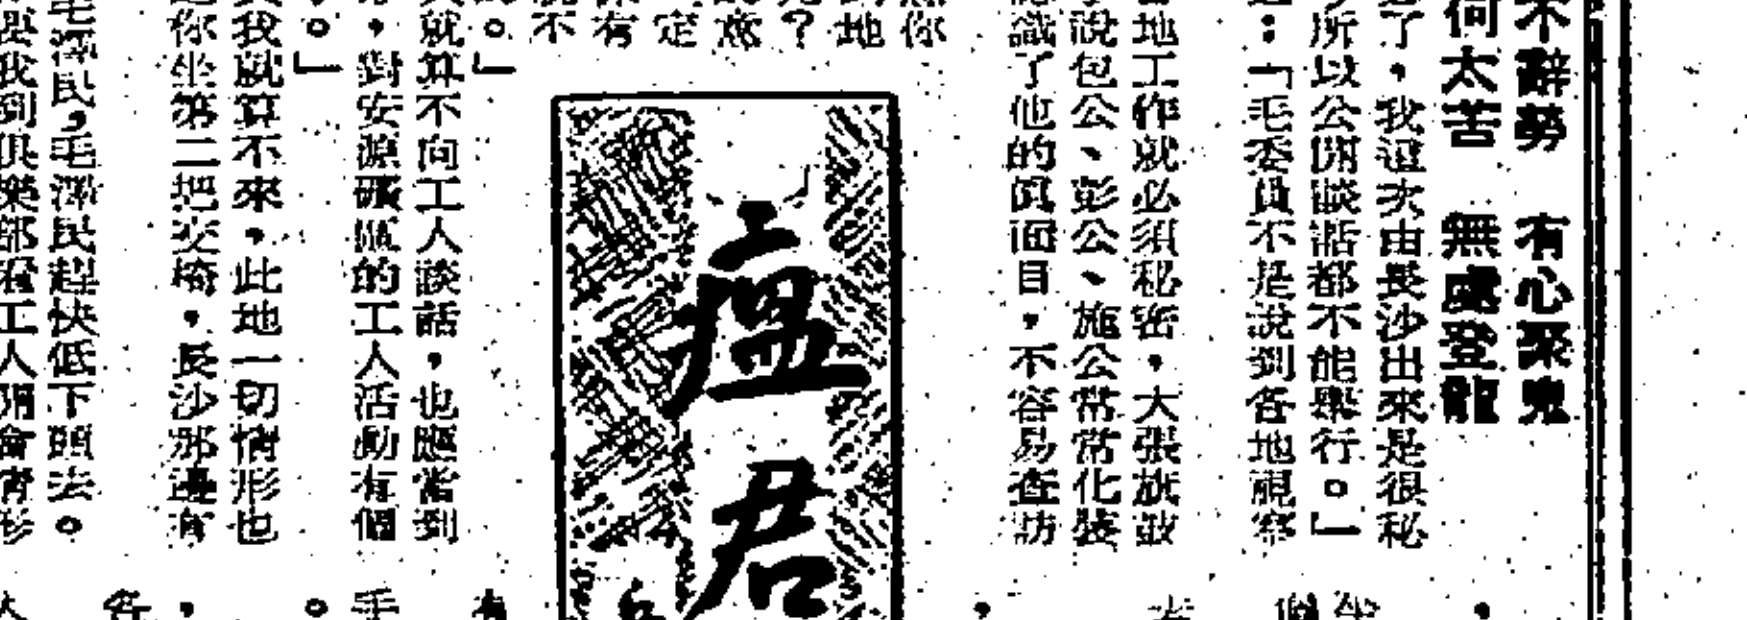 不辭勞　有心聚鬼
何太苦　無處登龍
了，我這次由長沙出來是很秘
所以公開談話都不能舉行。」
：「毛委員不是說到各地視察
地工作就必須秘密，大張旗鼓
說包公、彭公、施公常常化裝
識了他的眞面目，不容易查訪
你
地
？
意
定
有
不
。」
就算不向工人談話，也應當到
，對安源礦區的工人活動有個
。」
我就算不來，此地一切情形也
你坐第二把交椅，長沙那邊有
毛澤民，毛澤民趕快低下頭去。
我到俱樂部看工人開會情形
瘟君